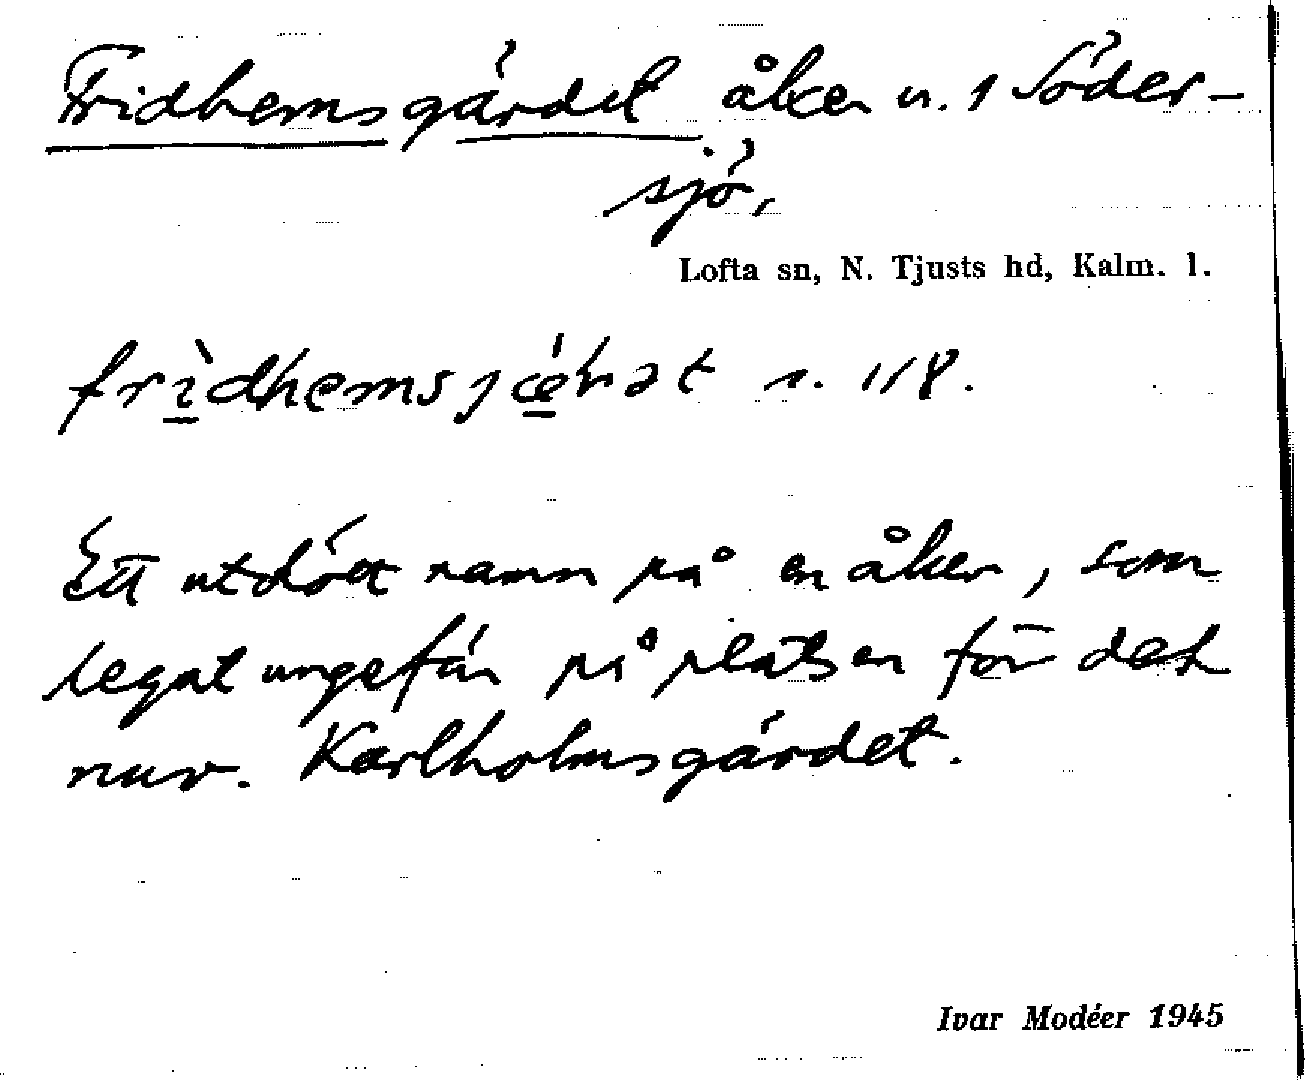 Fridhemsgärdet åker u. 1 Söder-
sjö,
Lofta sn, N. Tjusts hd, Kalm. l.
s. 118.
Ett utdött namn på en åker, som
legat ungefär på platsen för det
nuv. Karlholmsgärdet.
Ivar Modéer 1945